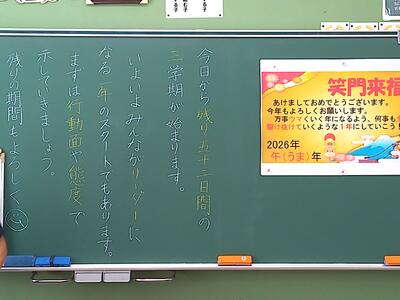 今日から残り五十二日間の
三学期が始まります。
いよいよみんながリーダーに
なる一年のスタートでもあります。
まずは行動面や態度で
示していきましょう。
残りの期間もよろしく
笑門来福
あけましておめでとうございます。
今年もよろしくお願いします。
万事ウマくいく年になるよう、何事も
駆け抜けていくような1年にしていこう!
2026年
午(うま)年